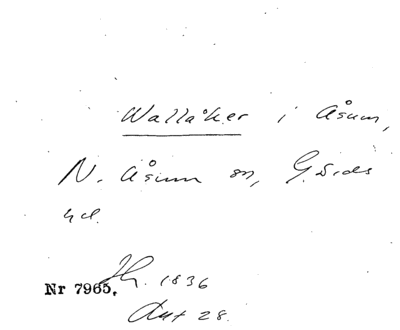 Wallåker i Åsum,
N. Åsum sn, G:ds
hd.
Nr 7965. Jh. 1836
Aux 28.